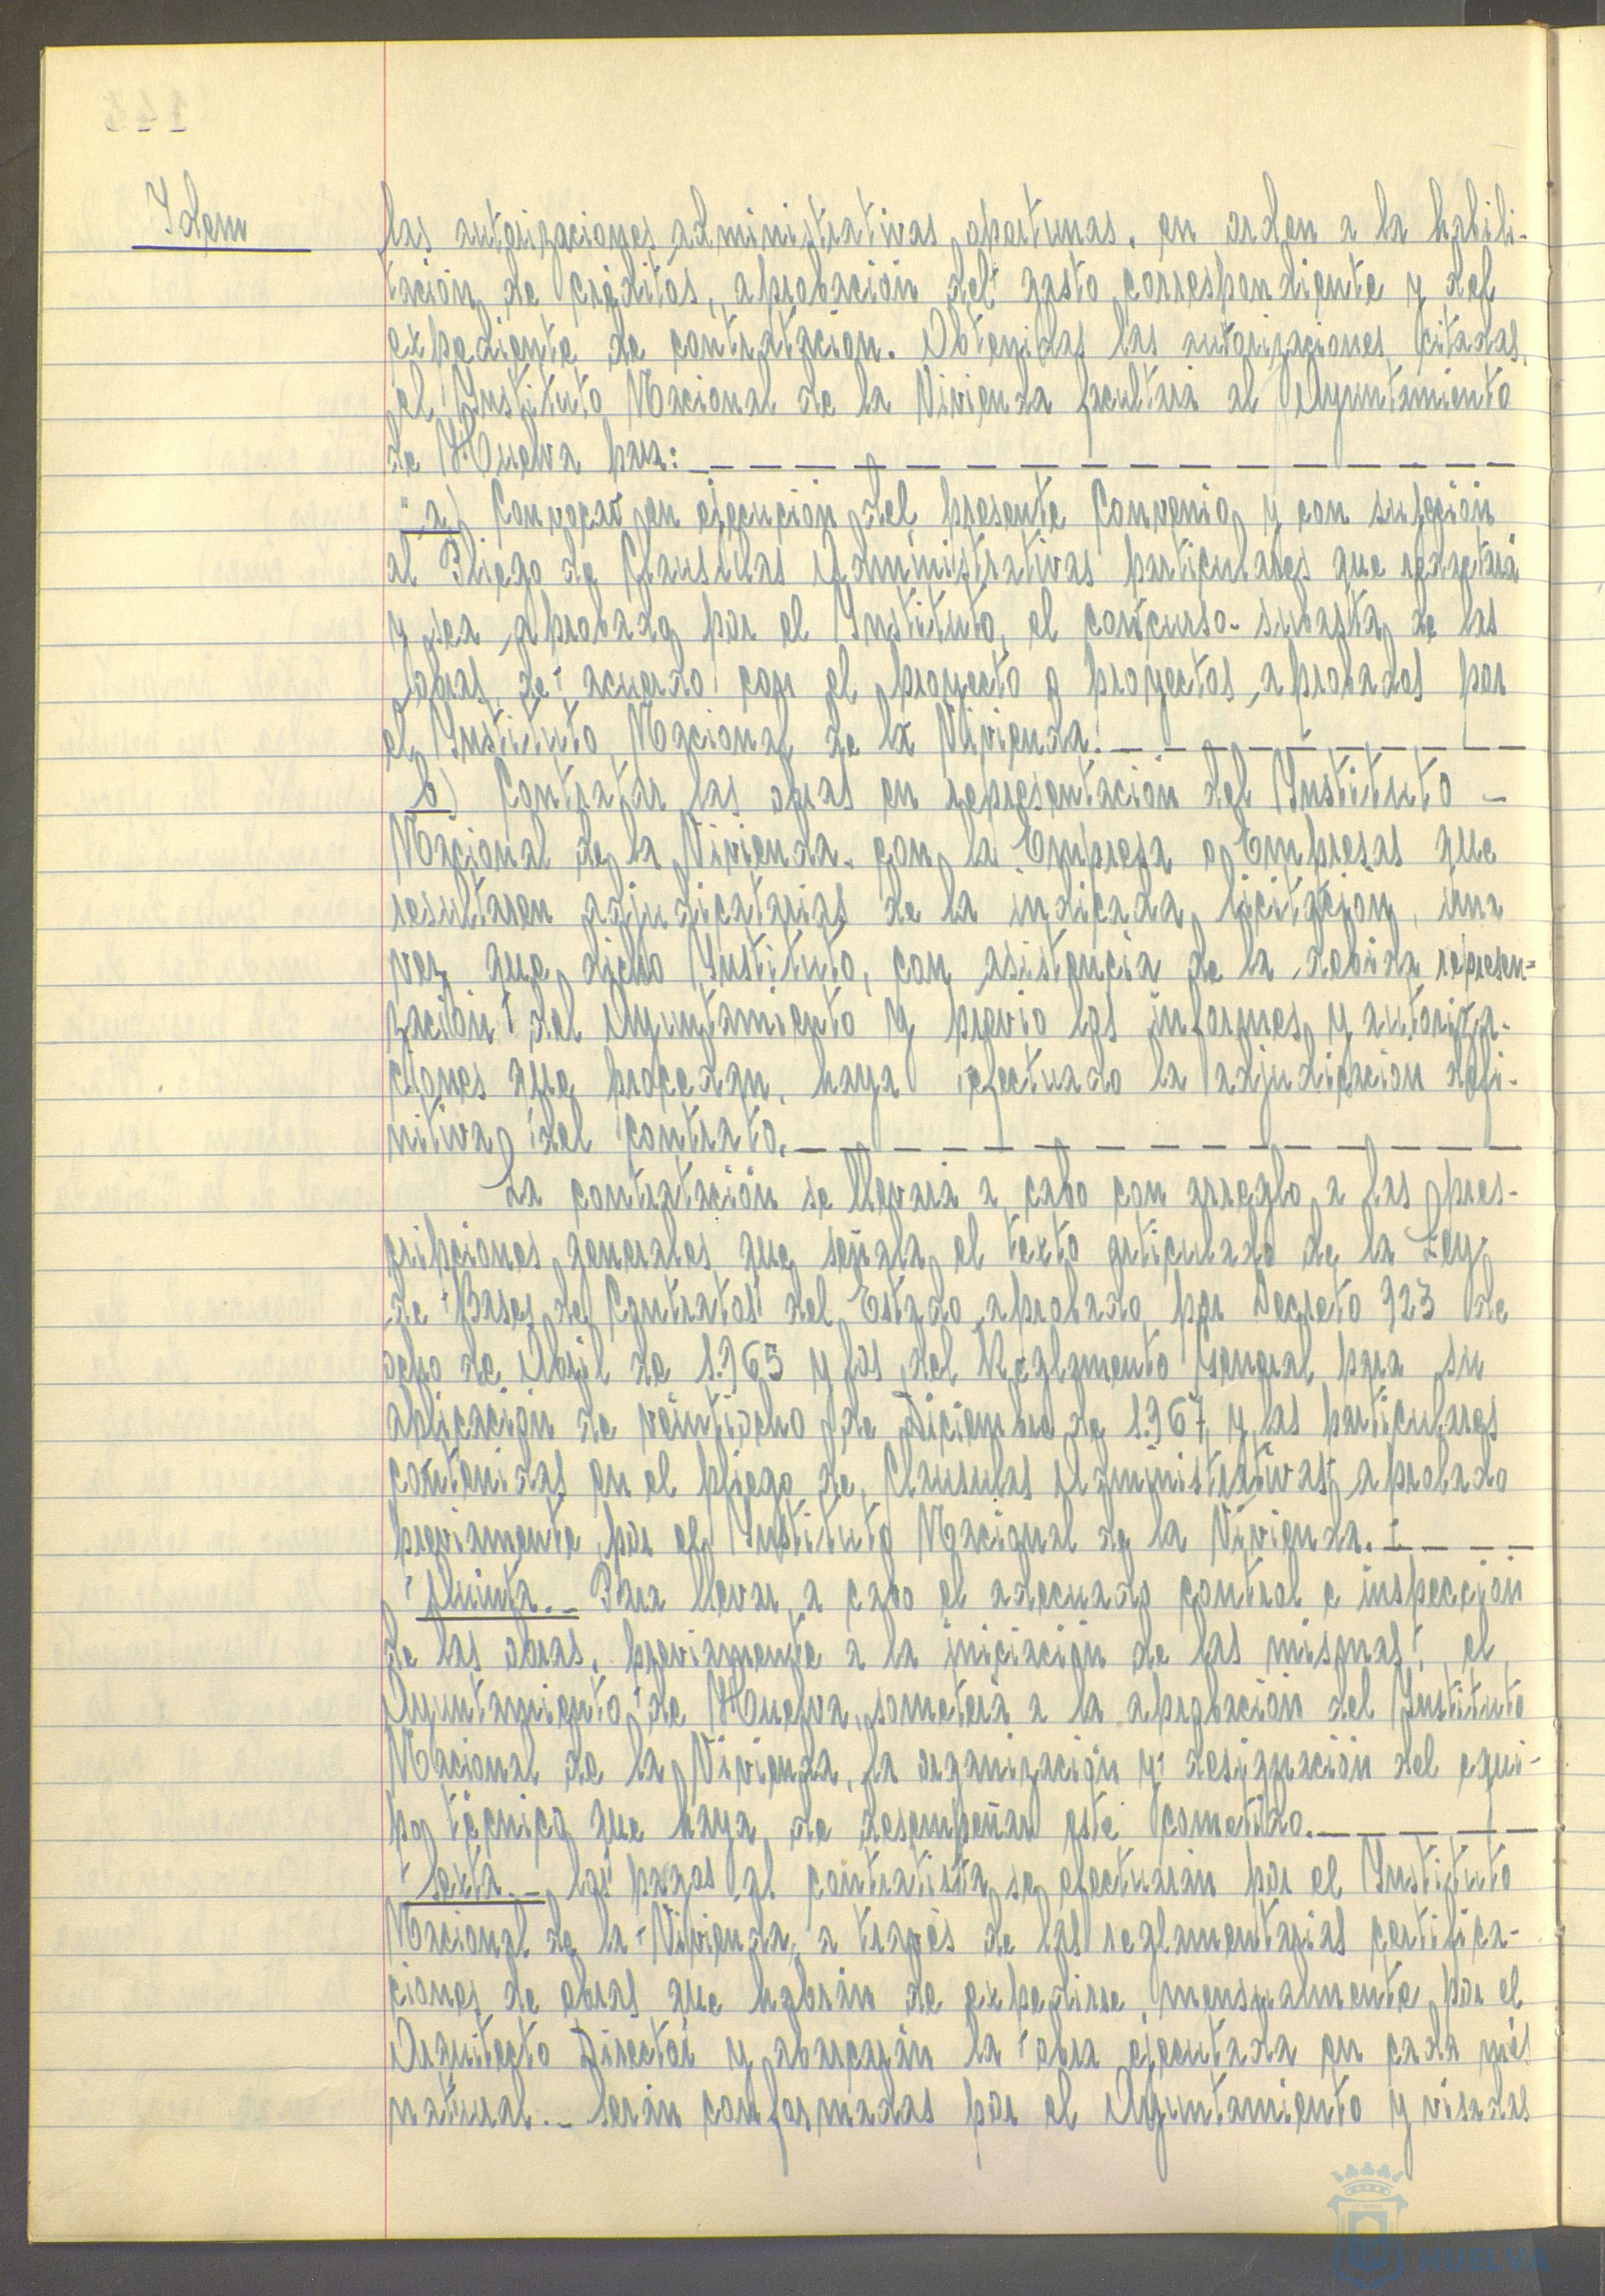 Idem
las autorizaciones administrativas oportunas, en orden a la habili-
tación de créditos, aprobación del gasto correspondiente y del
expediente de contratación. Obtenidas las autorizaciones citadas,
el Instituto Nacional de la Vivienda facultará al Ayuntamiento
de Huelva para:
a) Convocar en ejecución del presente Convenio y con sujeción
al Pliego de Claúsulas Administrativas particulares que redactará
y sea aprobado por el Instituto, el concurso-subasta de las
obras, de acuerdo con el proyecto o proyectos aprobados por
el Instituto Nacional de la Vivienda.
b) Contratar las obras en representación del Instituto -
Nacional de la Vivienda, con la Empresa o Empresas que
resultaren adjudicatarias de la indicada licitación, una
vez que dicho Instituto, con asistencia de la debida represen=
tación del Ayuntamiento y previo los informes y autoriza-
ciones que procedan, haya efectuado la adjudicación defi-
nitiva del contrato.
La contratación se llevará a cabo con arreglo a las pres-
cripciones generales que señala el texto articulado de la Ley
de Bases de Contratos del Estado aprobado por Decreto 923 de
ocho de Abril de 1.965 y los del Reglamento General para su
aplicación de veintiocho de Diciembre de 1.967 y las particulares
contenidas en el pliego de Clausulas Administrativas aprobado
previamente por el Instituto Nacional de la Vivienda.
Quinta.- Para llevar a cabo el adecuado control e inspección
de las obras, previamente a la iniciación de las mismas, el
Ayuntamiento de Huelva, someterá a la aprobación del Instituto
Nacional de la Vivienda, la organización y designación del equi-
po técnico que haya de desempeñar este cometido.
Sexta.- Los pagos al contratista se efectuarán por el Instituto
Nacional de la Vivienda, a través de las reglamentarias certifica-
ciones de obras que habrán de expedirse mensualmente por el
Arquitecto Director y abarcarán la obra ejecutada en cada més
natural.- Serán conformadas por el Ayuntamiento y visadas
HUELVA